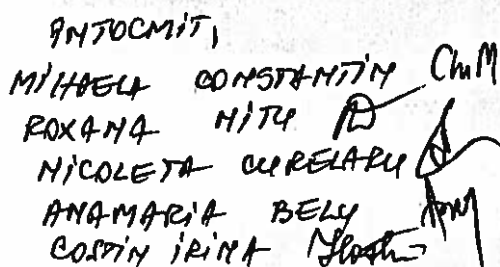 ANTOCMIT,
MIHAELA CONSTANTIN
ROXANA NITU
NICOLETA CURELARU
ANAMARIA BELU
COSTIN IRINA